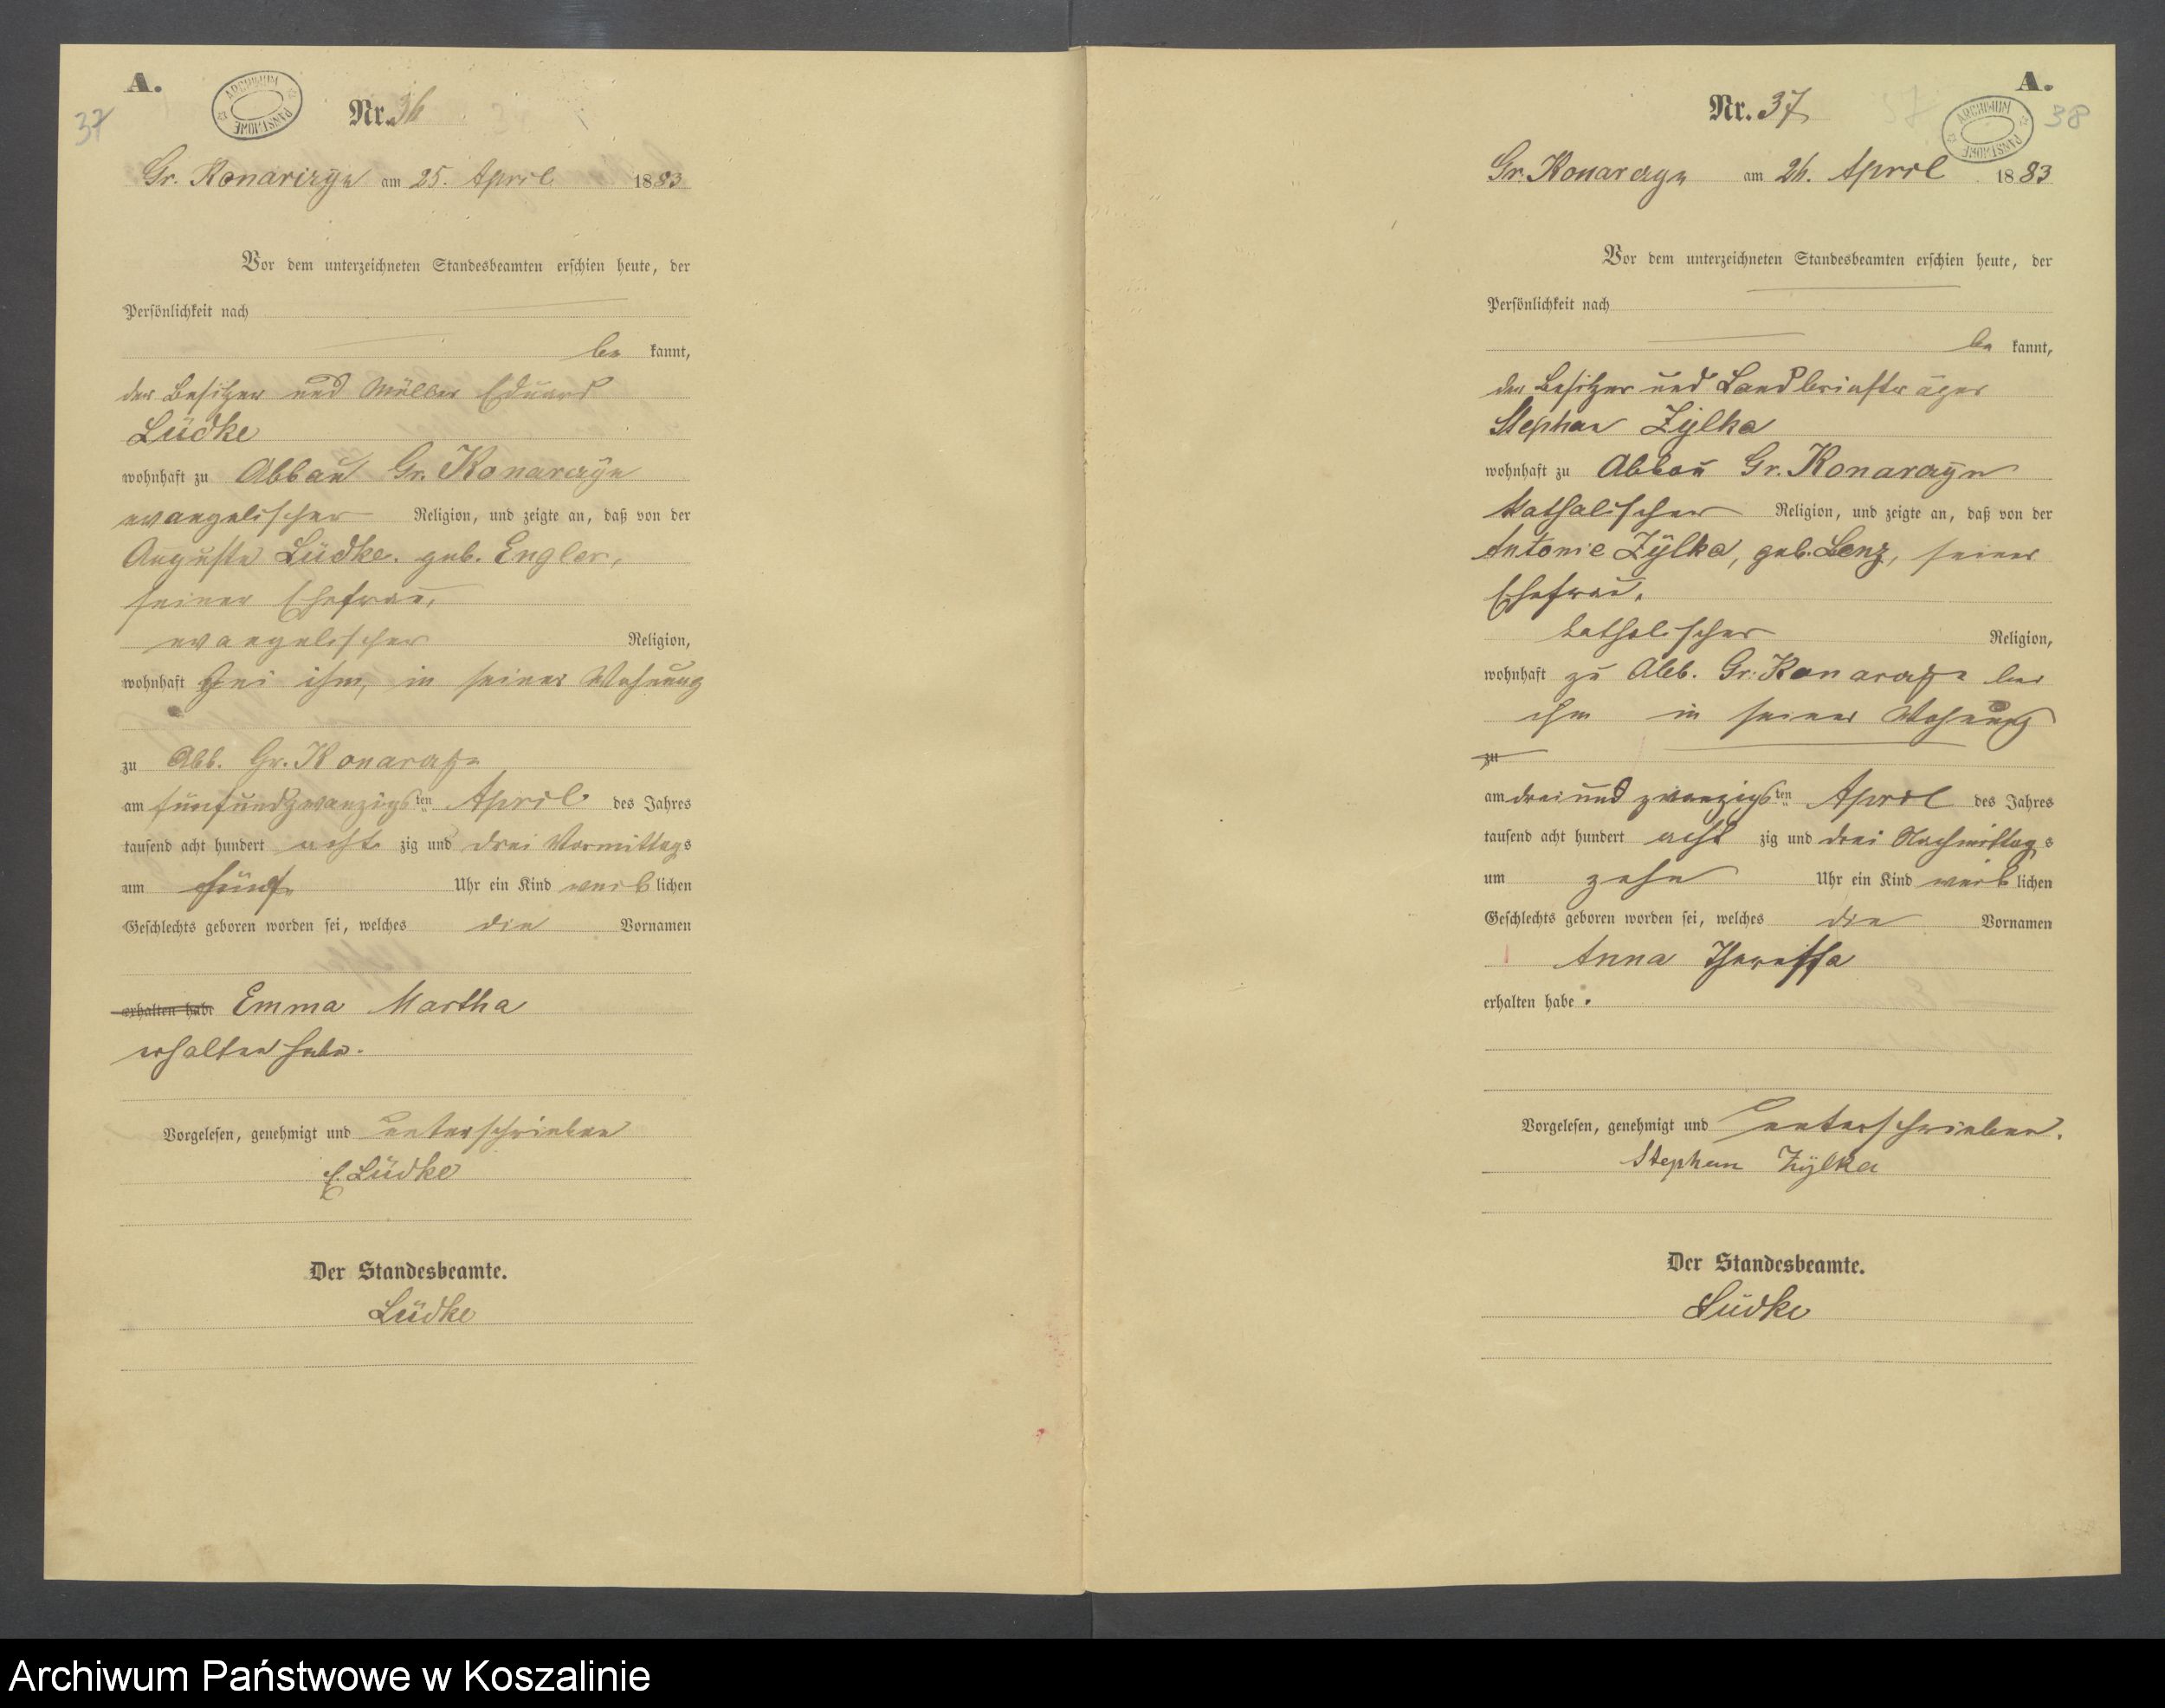 A.
37
ARCHIWUM PAŃSTWOWE
Nr. 36
Gr. Konarczyn am 25. April 1883
Vor dem unterzeichneten Standesbeamten erschien heute, der
Persönlichkeit nach
be kannt,
der Besitzer und Müller Eduard
Lüdke
wohnhaft zu Abbau Gr. Konarczyn
evangelischer Religion, und zeigte an, daß von der
Auguste Lüdke geb. Engler,
seiner Ehefrau,
evangelischer Religion,
wohnhaft bei ihm, in seiner Wohnung
zu Abb. Gr. Konarczyn
am fünfundzwanzigsten April des Jahres
tausend acht hundert acht zig und drei Vormittags
um fünf Uhr ein Kind weiblichen
Geschlechts geboren worden sei, welches die Vornamen
erhalten habe Emma Martha
erhalten habe.
Vorgelesen, genehmigt und unterschrieben
E. Lüdke
Der Standesbeamte.
Lüdke
A.
38
ARCHIWUM PAŃSTWOWE
Nr. 37
Gr. Konarczyn am 26. April 1883
Vor dem unterzeichneten Standesbeamten erschien heute, der
Persönlichkeit nach
be kannt,
der Besitzer und Landbriefträger
Stephan Zÿlka
wohnhaft zu Abbau Gr. Konarczyn
katholischer Religion, und zeigte an, daß von der
Antonie Zÿlka, geb. Lenz, seiner
Ehefrau,
katholischer Religion,
wohnhaft zu Abb. Gr. Konarczyn bei
ihm in seiner Wohnung
zu
am dreiundzwanzigsten April des Jahres
tausend acht hundert acht zig und drei Nachmittags
um zehn Uhr ein Kind weiblichen
Geschlechts geboren worden sei, welches die Vornamen
Anna Theressa
erhalten habe.
Vorgelesen, genehmigt und unterschrieben.
Stephan Zÿlka
Der Standesbeamte.
Lüdke
Archiwum Państwowe w Koszalinie